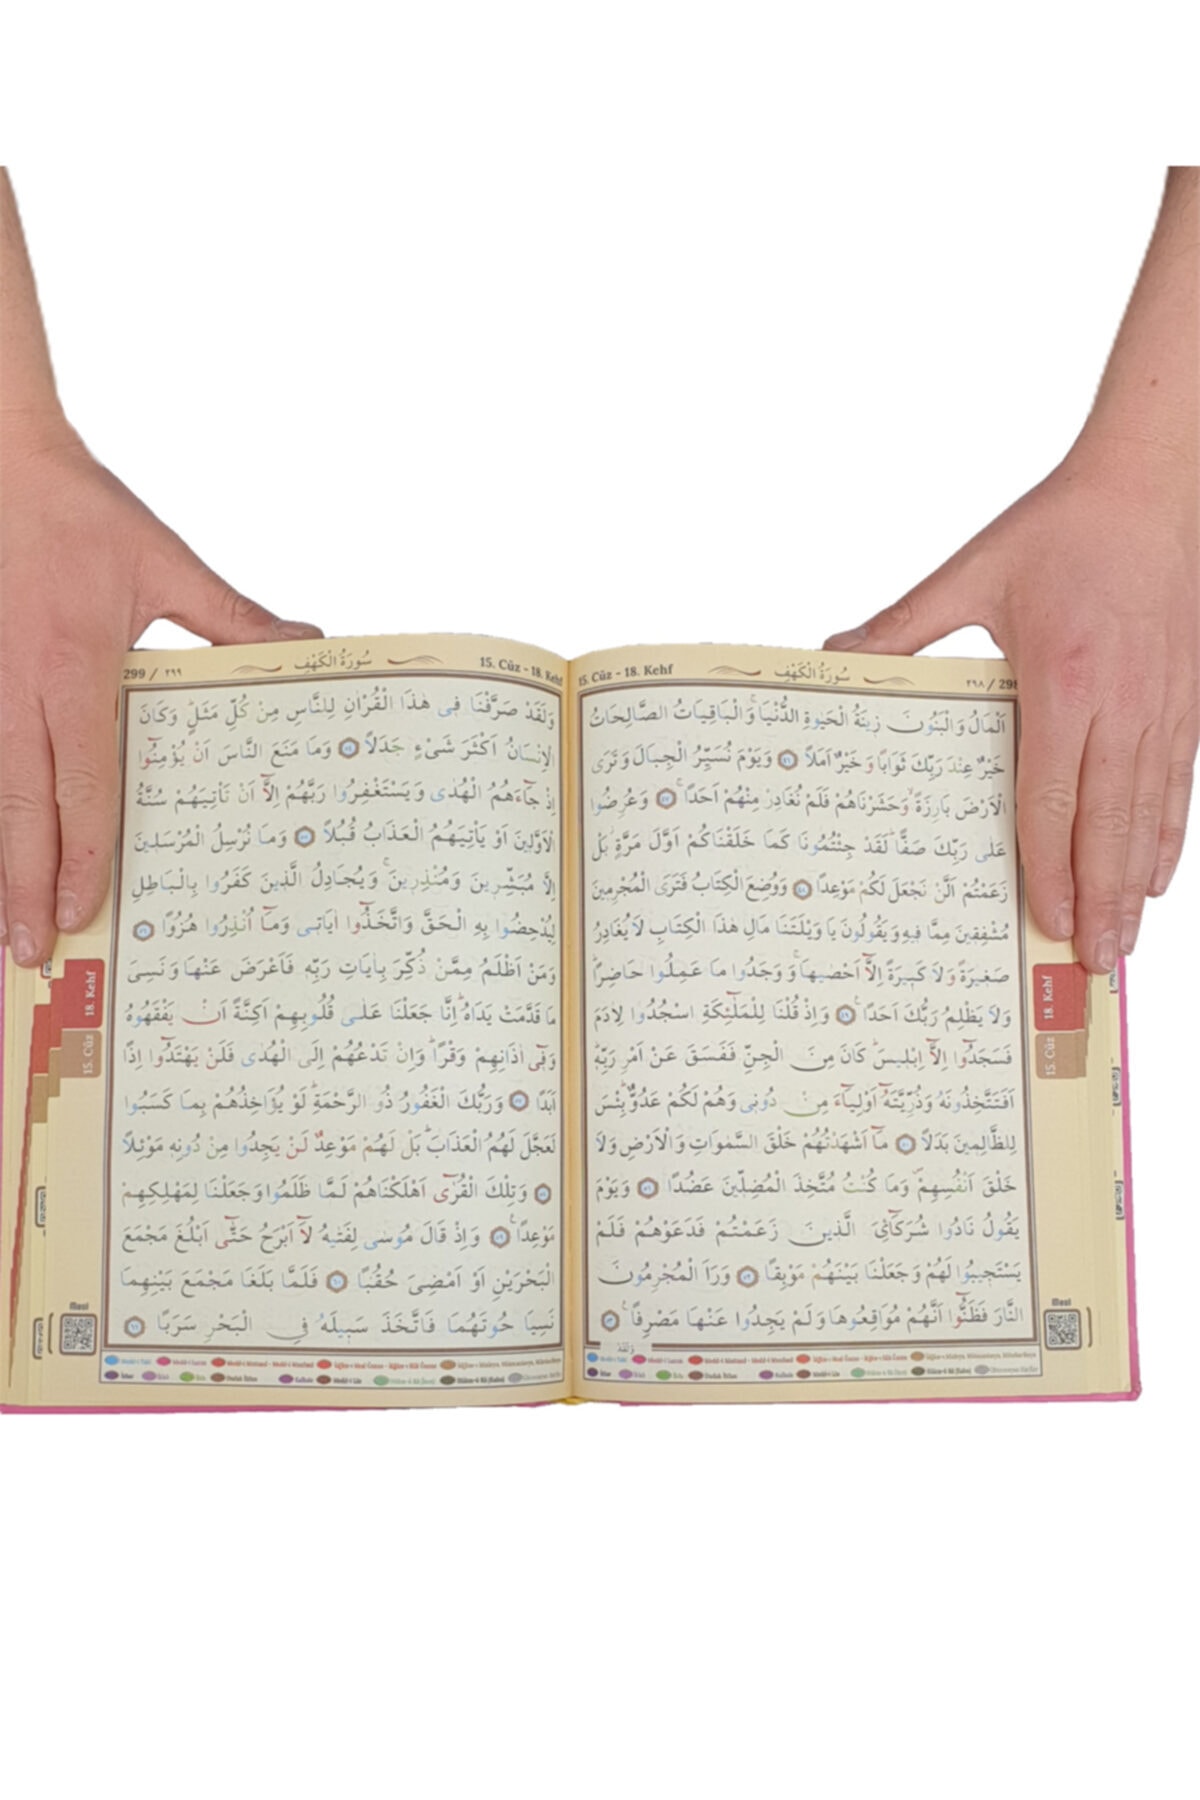 ٢٩٨ / 298
15. Cüz - 18. Kehf
سُورَةُ الْكَهْفِ
اَلْمَالُ وَالْبَنُونَ زِينَةُ الْحَيٰوةِ الدُّنْيَاۚ وَالْبَاقِيَاتُ الصَّالِحَاتُ
خَيْرٌ عِنْدَ رَبِّكَ ثَوَابًا وَخَيْرٌ اَمَلًا ﴿٤٦﴾ وَيَوْمَ نُسَيِّرُ الْجِبَالَ وَتَرَى
الْاَرْضَ بَارِزَةًۙ وَحَشَرْنَاهُمْ فَلَمْ نُغَادِرْ مِنْهُمْ اَحَدًاۚ ﴿٤٧﴾ وَعُرِضُوا
عَلٰى رَبِّكَ صَفًّاۜ لَقَدْ جِئْتُمُونَا كَمَا خَلَقْنَاكُمْ اَوَّلَ مَرَّةٍۘ بَلْ
زَعَمْتُمْ اَلَّنْ نَجْعَلَ لَكُمْ مَوْعِدًا ﴿٤٨﴾ وَوُضِعَ الْكِتَابُ فَتَرَى الْمُجْرِمِينَ
مُشْفِقِينَ مِمَّا فِيهِ وَيَقُولُونَ يَا وَيْلَتَنَا مَالِ هٰذَا الْكِتَابِ لَا يُغَادِرُ
صَغِيرَةً وَلَا كَبِيرَةً اِلَّٓا اَحْصٰيهَاۚ وَوَجَدُوا مَا عَمِلُوا حَاضِرًاۜ
وَلَا يَظْلِمُ رَبُّكَ اَحَدًا۟ ﴿٤٩﴾ وَاِذْ قُلْنَا لِلْمَلٰٓئِكَةِ اسْجُدُوا لِاٰدَمَ
فَسَجَدُٓوا اِلَّٓا اِبْلِيسَۜ كَانَ مِنَ الْجِنِّ فَفَسَقَ عَنْ اَمْرِ رَبِّهٖۜ
اَفَتَتَّخِذُونَهُ وَذُرِّيَّتَهُٓ اَوْلِيَٓاءَ مِنْ دُونٖى وَهُمْ لَكُمْ عَدُوٌّۜ بِئْسَ
لِلظَّالِمِينَ بَدَلًا ﴿٥٠﴾ مَٓا اَشْهَدْتُهُمْ خَلْقَ السَّمٰوَاتِ وَالْاَرْضِ وَلَا
خَلْقَ اَنْفُسِهِمْۖ وَمَا كُنْتُ مُتَّخِذَ الْمُضِلِّينَ عَضُدًا ﴿٥١﴾ وَيَوْمَ
يَقُولُ نَادُوا شُرَكَٓائِيَ الَّذِينَ زَعَمْتُمْ فَدَعَوْهُمْ فَلَمْ
يَسْتَجِيبُوا لَهُمْ وَجَعَلْنَا بَيْنَهُمْ مَوْبِقًا ﴿٥٢﴾ وَرَاَ الْمُجْرِمُونَ
النَّارَ فَظَنُّٓوا اَنَّهُمْ مُوَاقِعُوهَا وَلَمْ يَجِدُوا عَنْهَا مَصْرِفًا۟ ﴿٥٣﴾
وَلَقَدْ
18. Kehf
15. Cüz
299 / ٢٩٩
سُورَةُ الْكَهْفِ
15. Cüz - 18. Kehf
وَلَقَدْ صَرَّفْنَا فٖى هٰذَا الْقُرْاٰنِ لِلنَّاسِ مِنْ كُلِّ مَثَلٍۜ وَكَانَ
الْاِنْسَانُ اَكْثَرَ شَىْءٍ جَدَلًا ﴿٥٤﴾ وَمَا مَنَعَ النَّاسَ اَنْ يُؤْمِنُٓوا
اِذْ جَٓاءَهُمُ الْهُدٰى وَيَسْتَغْفِرُوا رَبَّهُمْ اِلَّٓا اَنْ تَاْتِيَهُمْ سُنَّةُ
الْاَوَّلِينَ اَوْ يَاْتِيَهُمُ الْعَذَابُ قُبُلًا ﴿٥٥﴾ وَمَا نُرْسِلُ الْمُرْسَلِينَ
اِلَّا مُبَشِّرِينَ وَمُنْذِرِينَۚ وَيُجَادِلُ الَّذِينَ كَفَرُوا بِالْبَاطِلِ
لِيُدْحِضُوا بِهِ الْحَقَّ وَاتَّخَذُٓوا اٰيَاتٖى وَمَٓا اُنْذِرُوا هُزُوًا ﴿٥٦﴾
وَمَنْ اَظْلَمُ مِمَّنْ ذُكِّرَ بِاٰيَاتِ رَبِّهٖ فَاَعْرَضَ عَنْهَا وَنَسِىَ
مَا قَدَّمَتْ يَدَاهُۜ اِنَّا جَعَلْنَا عَلٰى قُلُوبِهِمْ اَكِنَّةً اَنْ يَفْقَهُوهُ
وَفٖٓى اٰذَانِهِمْ وَقْرًاۜ وَاِنْ تَدْعُهُمْ اِلَى الْهُدٰى فَلَنْ يَهْتَدُٓوا اِذًا
اَبَدًا ﴿٥٧﴾ وَرَبُّكَ الْغَفُورُ ذُو الرَّحْمَةِۜ لَوْ يُؤَاخِذُهُمْ بِمَا كَسَبُوا
لَعَجَّلَ لَهُمُ الْعَذَابَۜ بَلْ لَهُمْ مَوْعِدٌ لَنْ يَجِدُوا مِنْ دُونِهٖ مَوْئِلًا
﴿٥٨﴾ وَتِلْكَ الْقُرٰٓى اَهْلَكْنَاهُمْ لَمَّا ظَلَمُوا وَجَعَلْنَا لِمَهْلِكِهِمْ
مَوْعِدًا۟ ﴿٥٩﴾ وَاِذْ قَالَ مُوسٰى لِفَتٰيهُ لَٓا اَبْرَحُ حَتّٰٓى اَبْلُغَ مَجْمَعَ
الْبَحْرَيْنِ اَوْ اَمْضِىَ حُقُبًا ﴿٦٠﴾ فَلَمَّا بَلَغَا مَجْمَعَ بَيْنِهِمَا
نَسِيَا حُوتَهُمَا فَاتَّخَذَ سَبِيلَهُ فِى الْبَحْرِ سَرَبًا ﴿٦١﴾
18. Kehf
15. Cüz